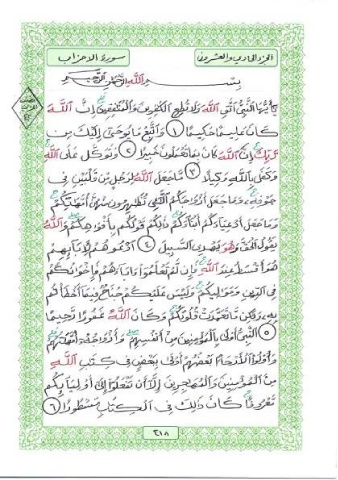 الجزء الحادي والعشرون
سورة الاحزاب
بِسْمِ اللَّهِ الرَّحْمَنِ الرَّحِيمِ
يَا أَيُّهَا النَّبِيُّ اتَّقِ اللَّهَ وَلَا تُطِعِ الْكَافِرِينَ وَالْمُنَافِقِينَ إِنَّ اللَّهَ
كَانَ عَلِيمًا حَكِيمًا ١ وَاتَّبِعْ مَا يُوحَى إِلَيْكَ مِن
رَّبِّكَ إِنَّ اللَّهَ كَانَ بِمَا تَعْمَلُونَ خَبِيرًا ٢ وَتَوَكَّلْ عَلَى اللَّهِ
وَكَفَى بِاللَّهِ وَكِيلًا ٣ مَا جَعَلَ اللَّهُ لِرَجُلٍ مِّن قَلْبَيْنِ فِي
جَوْفِهِ وَمَا جَعَلَ أَزْوَاجَكُمُ اللَّائِي تُظَاهِرُونَ مِنْهُنَّ أُمَّهَاتِكُمْ
وَمَا جَعَلَ أَدْعِيَاءَكُمْ أَبْنَاءَكُمْ ذَلِكُمْ قَوْلُكُم بِأَفْوَاهِكُمْ وَاللَّهُ
يَقُولُ الْحَقَّ وَهُوَ يَهْدِي السَّبِيلَ ٤ ادْعُوهُمْ لِآبَائِهِمْ
هُوَ أَقْسَطُ عِندَ اللَّهِ فَإِن لَّمْ تَعْلَمُوا آبَاءَهُمْ فَإِخْوَانُكُمْ
فِي الدِّينِ وَمَوَالِيكُمْ وَلَيْسَ عَلَيْكُمْ جُنَاحٌ فِيمَا أَخْطَأْتُم
بِهِ وَلَكِن مَّا تَعَمَّدَتْ قُلُوبُكُمْ وَكَانَ اللَّهُ غَفُورًا رَّحِيمًا
٥ النَّبِيُّ أَوْلَى بِالْمُؤْمِنِينَ مِنْ أَنفُسِهِمْ وَأَزْوَاجُهُ أُمَّهَاتُهُمْ
وَأُولُو الْأَرْحَامِ بَعْضُهُمْ أَوْلَى بِبَعْضٍ فِي كِتَابِ اللَّهِ
مِنَ الْمُؤْمِنِينَ وَالْمُهَاجِرِينَ إِلَّا أَن تَفْعَلُوا إِلَى أَوْلِيَائِكُم
مَّعْرُوفًا كَانَ ذَلِكَ فِي الْكِتَابِ مَسْطُورًا ٦
٤١٨